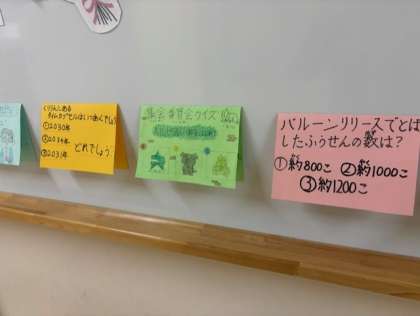 タイムカプセルはいつあくでしょう
①2030年
③2031年
どれでしょう
集会委員会クイズ
バルーンリリースでとば
したふうせんの数は？
①約800こ ②約1000こ
③約1200こ